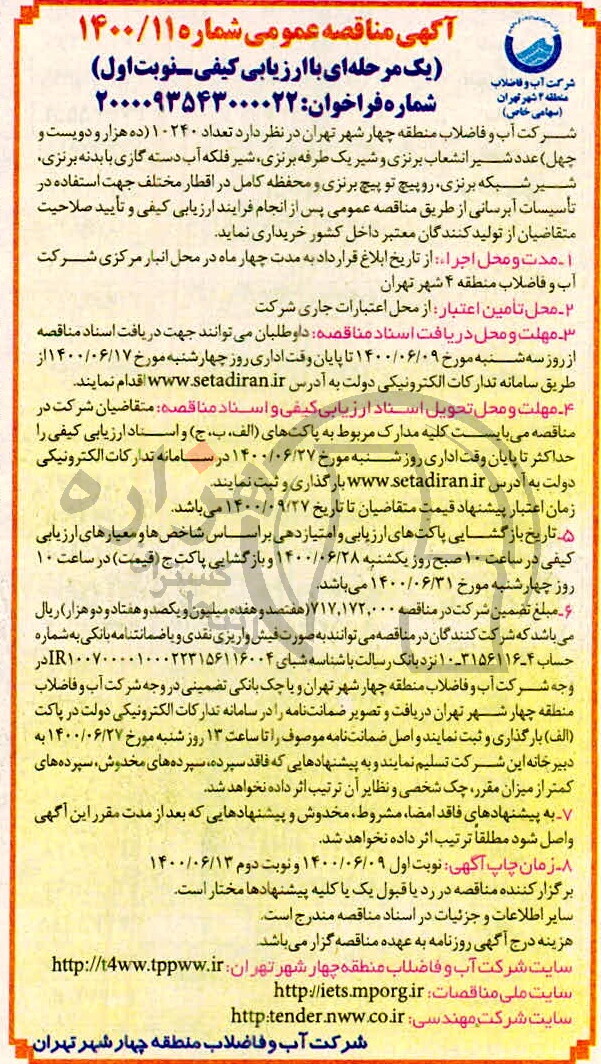 آگهی مناقصه عمومی شماره ۱۴۰۰/۱۱
(یک مرحله‌ای با ارزیابی کیفی ـ نوبت اول)
شماره فراخوان: ۲۰۰۰۰۹۳۵۴۳۰۰۰۰۲۲
شرکت آب و فاضلاب
منطقه ۴ شهر تهران
(سهامی خاص)
شرکت آب و فاضلاب منطقه چهار شهر تهران در نظر دارد تعداد ۱۰۲۴۰ (ده هزار و دویست و
چهل) عدد شیر انشعاب برنزی و شیر یک طرفه برنزی، شیر فلکه آب دسته گازی با بدنه برنزی،
شیر شبکه برنزی، روپیچ تو پیچ برنزی و محفظه کامل در اقطار مختلف جهت استفاده در
تأسیسات آبرسانی از طریق مناقصه عمومی پس از انجام فرایند ارزیابی کیفی و تأیید صلاحیت
متقاضیان از تولیدکنندگان معتبر داخل کشور خریداری نماید.
۱ـ مدت و محل اجراء: از تاریخ ابلاغ قرارداد به مدت چهار ماه در محل انبار مرکزی شرکت
آب و فاضلاب منطقه ۴ شهر تهران
۲ـ محل تأمین اعتبار: از محل اعتبارات جاری شرکت
۳ـ مهلت و محل دریافت اسناد مناقصه: داوطلبان می‌توانند جهت دریافت اسناد مناقصه
از روز سه‌شنبه مورخ ۱۴۰۰/۰۶/۰۹ تا پایان وقت اداری روز چهارشنبه مورخ ۱۴۰۰/۰۶/۱۷ از
طریق سامانه تدارکات الکترونیکی دولت به آدرس www.setadiran.ir اقدام نمایند.
۴ـ مهلت و محل تحویل اسناد ارزیابی کیفی و اسناد مناقصه: متقاضیان شرکت در
مناقصه می‌بایست کلیه مدارک مربوط به پاکت‌های (الف، ب، ج) و اسناد ارزیابی کیفی را
حداکثر تا پایان وقت اداری روز شنبه مورخ ۱۴۰۰/۰۶/۲۷ در سامانه تدارکات الکترونیکی
دولت به آدرس www.setadiran.ir بارگذاری و ثبت نمایند.
زمان اعتبار پیشنهاد قیمت متقاضیان تا تاریخ ۱۴۰۰/۰۹/۲۷ می‌باشد.
۵ـ تاریخ بازگشایی پاکت‌های ارزیابی و امتیازدهی براساس شاخص‌ها و معیارهای ارزیابی
کیفی در ساعت ۱۰ صبح روز یکشنبه ۱۴۰۰/۰۶/۲۸ و بازگشایی پاکت ج (قیمت) در ساعت ۱۰
روز چهارشنبه مورخ ۱۴۰۰/۰۶/۳۱ می‌باشد.
۶ـ مبلغ تضمین شرکت در مناقصه ۷۱۷,۱۷۲,۰۰۰ (هفتصد و هفده میلیون و یکصد و هفتاد و دو هزار) ریال
می‌باشد که شرکت‌کنندگان در مناقصه می‌توانند به صورت فیش واریزی نقدی و یا ضمانتنامه بانکی به شماره
حساب ۴ـ۳۱۵۶۱۱۶ـ۱۰ نزد بانک رسالت با شناسه شبای IR۱۰۰۷۰۰۰۰۱۰۰۰۲۲۳۱۵۶۱۱۶۰۰۴ در
وجه شرکت آب و فاضلاب منطقه چهار شهر تهران و یا چک بانکی تضمینی در وجه شرکت آب و فاضلاب
منطقه چهار شهر تهران دریافت و تصویر ضمانت‌نامه را در سامانه تدارکات الکترونیکی دولت در پاکت
(الف) بارگذاری و ثبت نمایند و اصل ضمانت‌نامه موصوف را تا ساعت ۱۳ روز شنبه مورخ ۱۴۰۰/۰۶/۲۷ به
دبیرخانه این شرکت تسلیم نمایند و به پیشنهادهایی که فاقد سپرده، سپرده‌های مخدوش، سپرده‌های
کمتر از میزان مقرر، چک شخصی و نظایر آن ترتیب اثر داده نخواهد شد.
۷ـ به پیشنهادهای فاقد امضا، مشروط، مخدوش و پیشنهادهایی که بعد از مدت مقرر این آگهی
واصل شود مطلقاً ترتیب اثر داده نخواهد شد.
۸ـ زمان چاپ آگهی: نوبت اول ۱۴۰۰/۰۶/۰۹ و نوبت دوم ۱۴۰۰/۰۶/۱۳
برگزارکننده مناقصه در رد یا قبول یک یا کلیه پیشنهادها مختار است.
سایر اطلاعات و جزئیات در اسناد مناقصه مندرج است.
هزینه درج آگهی روزنامه به عهده مناقصه‌گزار می‌باشد.
سایت شرکت آب و فاضلاب منطقه چهار شهر تهران: http://t4ww.tppww.ir
سایت ملی مناقصات: http://iets.mporg.ir
سایت شرکت مهندسی: http:tender.nww.co.ir
شرکت آب و فاضلاب منطقه چهار شهر تهران
هزاره